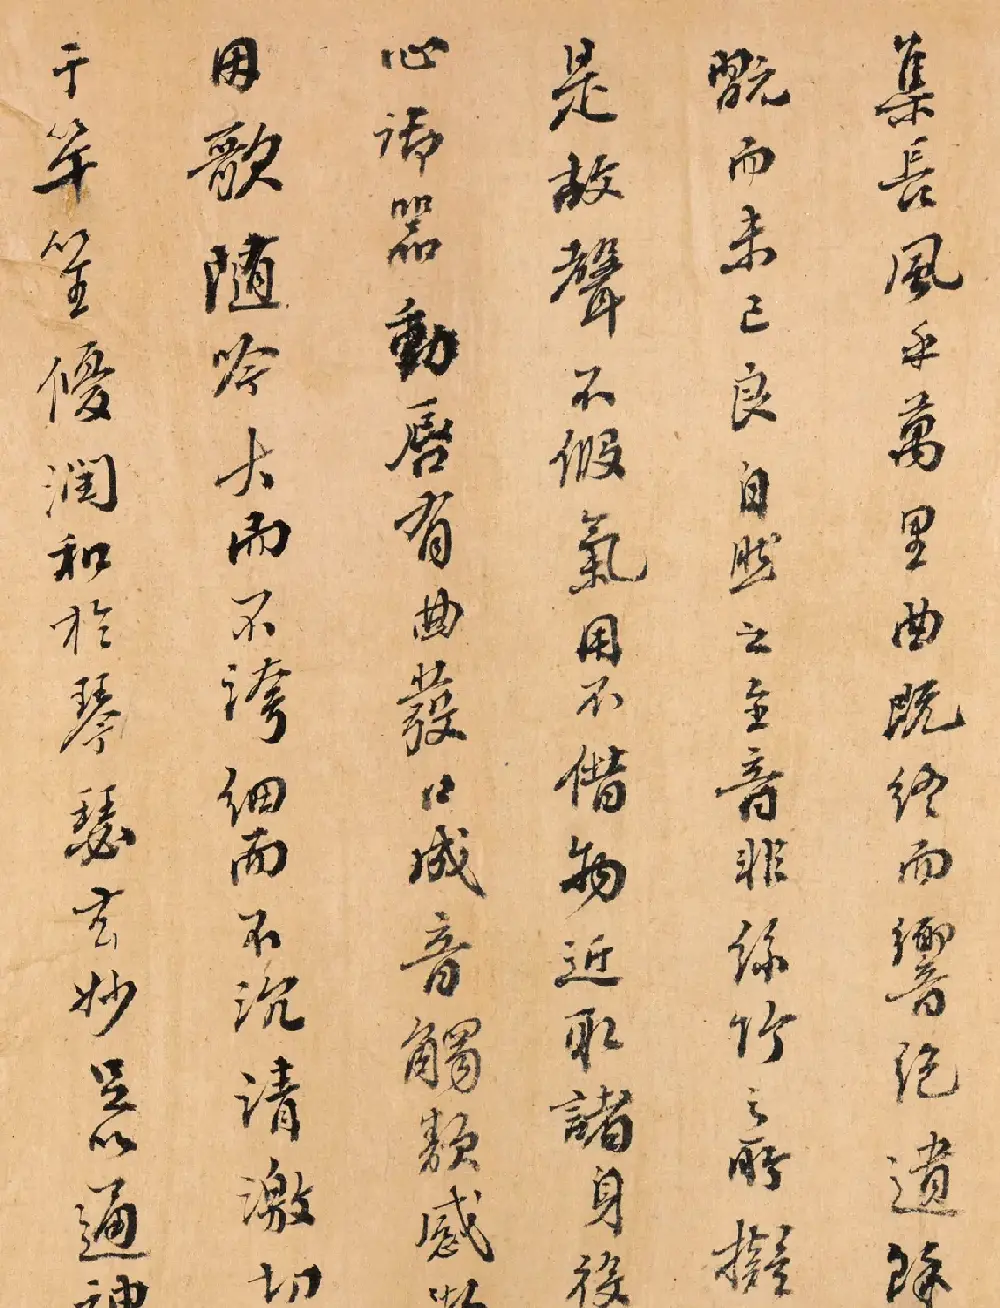 集長風乎萬里曲既終而響絕遺餘
翫而未已良自然之至音非絲竹之所擬
是故聲不假氣用不借物近取諸身役
心御器動唇有曲發口成音觸類感物
因歌隨吟大而不誇細而不沉清激切
于竽笙優潤和於琴瑟玄妙足以通神